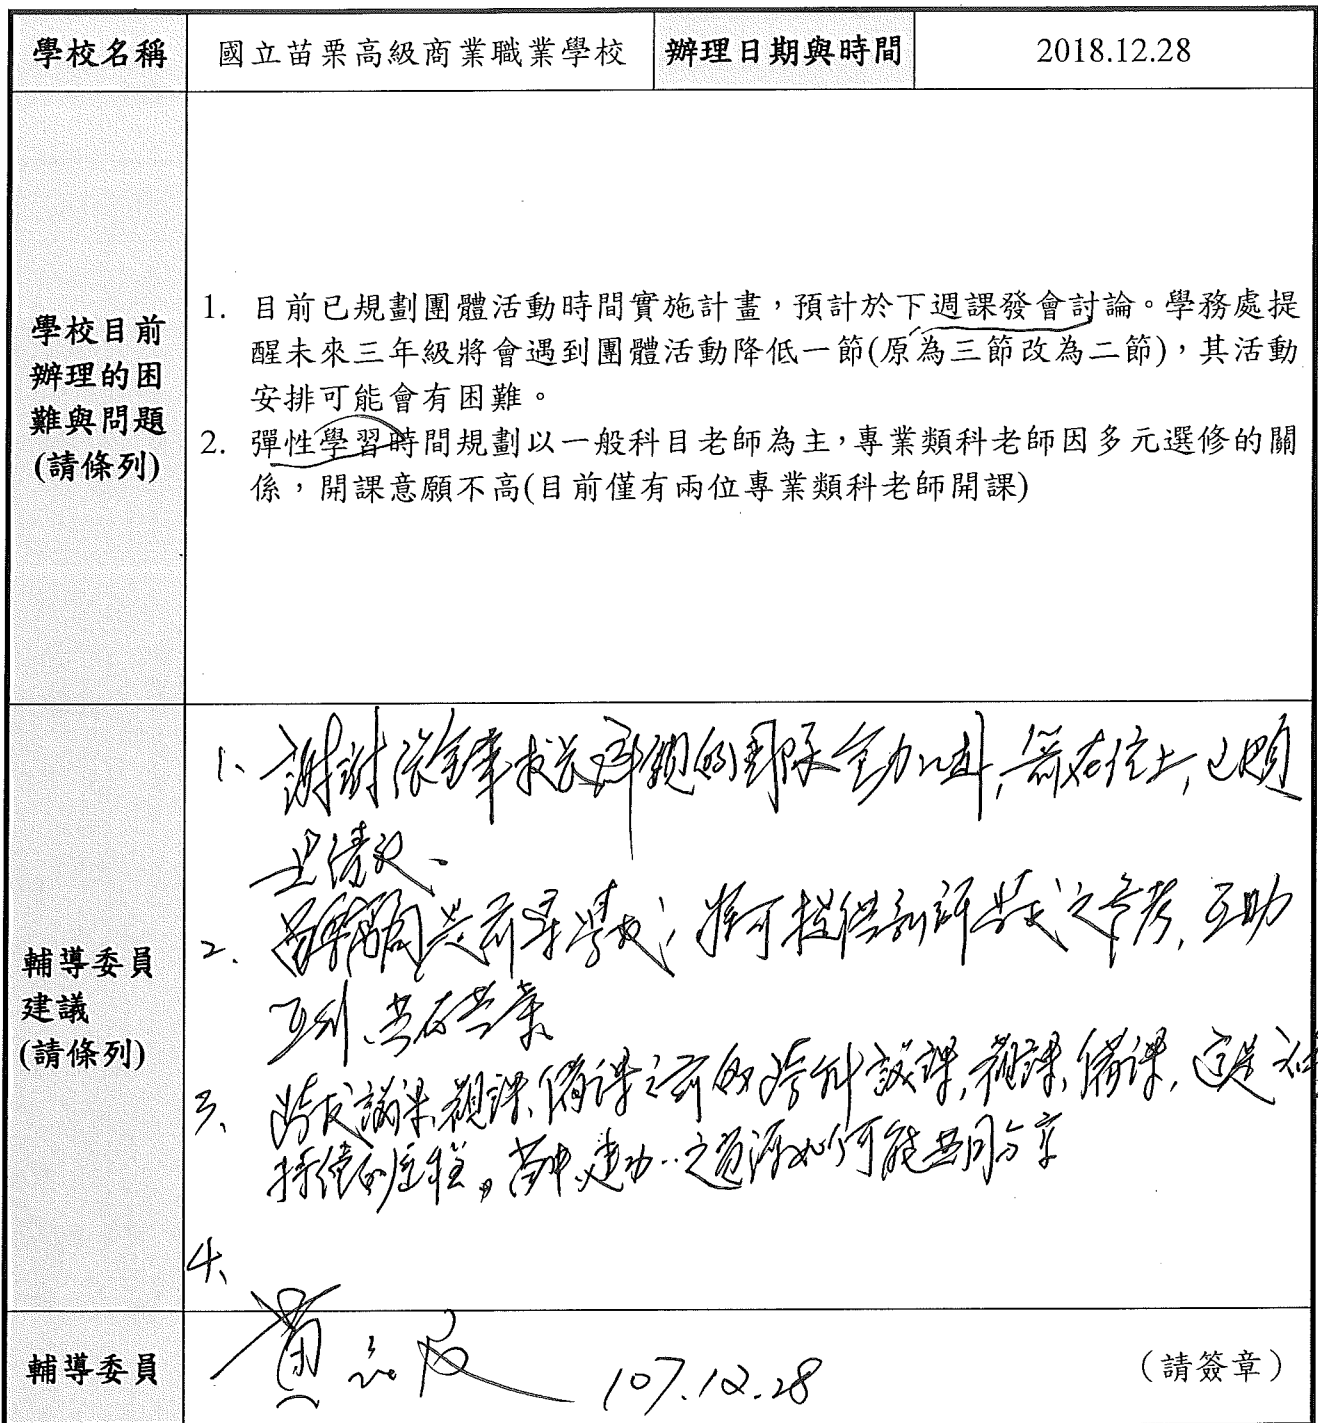 學校名稱 國立苗栗高級商業職業學校 辦理日期與時間 2018.12.28
學校目前
辦理的困
難與問題
(請條列)
1. 目前已規劃團體活動時間實施計畫，預計於下週課發會討論。學務處提
醒未來三年級將會遇到團體活動降低一節(原為三節改為二節)，其活動
安排可能會有困難。
2. 彈性學習時間規劃以一般科目老師為主，專業類科老師因多元選修的關
係，開課意願不高(目前僅有兩位專業類科老師開課)
輔導委員
建議
(請條列)
1、謝謝 校長 的團隊全力以赴,
績效、
2、前導學校; 可提供 之參考, 互助
互利、共存共榮
3、議課、觀課、備課之 跨科議課,觀課,備課, 這是
持續的 。苗中、建功‥之資源如何能共同分享
4、
輔導委員 黃 107.12.28 (請簽章)